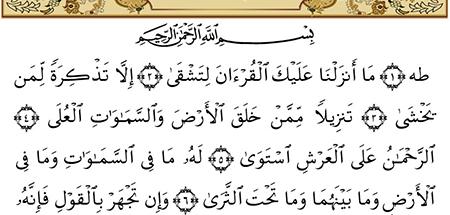 بِسْمِ ٱللَّهِ ٱلرَّحْمَٰنِ ٱلرَّحِيمِ
طه ﴿١﴾ مَا أَنزَلْنَا عَلَيْكَ ٱلْقُرْءَانَ لِتَشْقَىٰ ﴿٢﴾ إِلَّا تَذْكِرَةً لِّمَن
يَخْشَىٰ ﴿٣﴾ تَنزِيلًا مِّمَّنْ خَلَقَ ٱلْأَرْضَ وَالسَّمَٰوَٰتِ ٱلْعُلَى ﴿٤﴾
ٱلرَّحْمَٰنُ عَلَى ٱلْعَرْشِ ٱسْتَوَىٰ ﴿٥﴾ لَهُۥ مَا فِى ٱلسَّمَٰوَٰتِ وَمَا فِى
ٱلْأَرْضِ وَمَا بَيْنَهُمَا وَمَا تَحْتَ ٱلثَّرَىٰ ﴿٦﴾ وَإِن تَجْهَرْ بِٱلْقَوْلِ فَإِنَّهُۥ